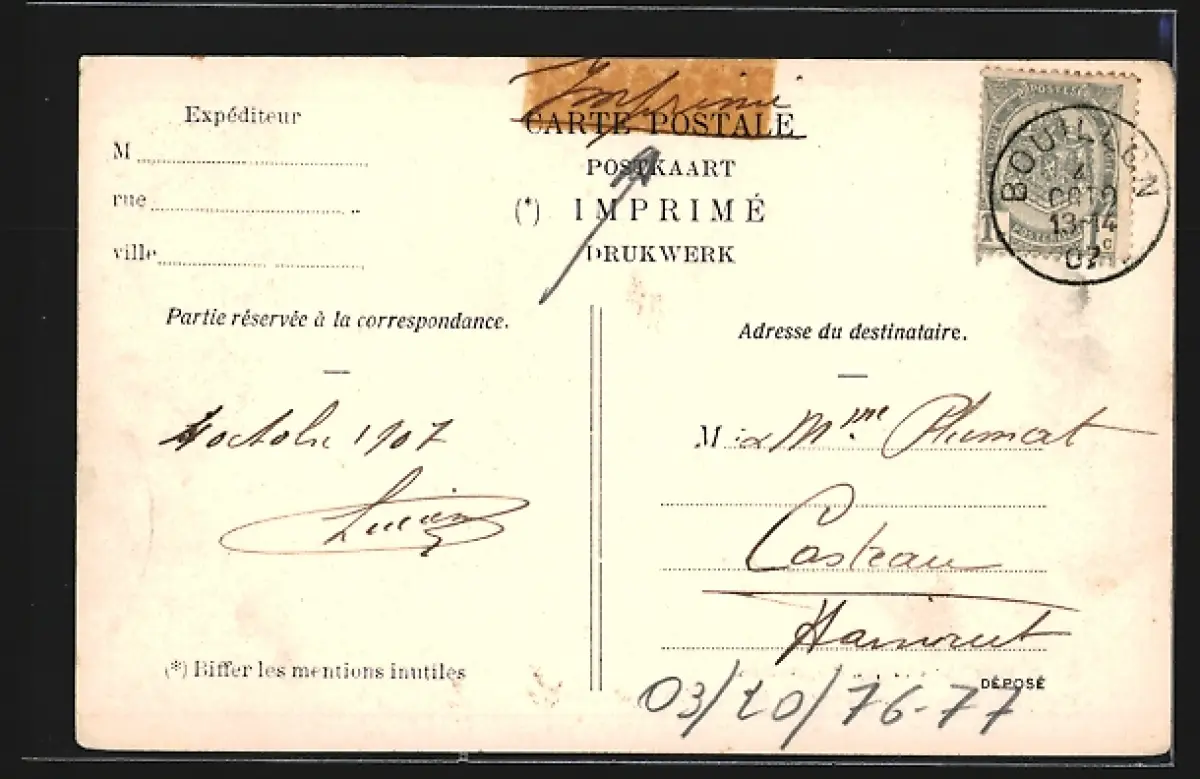 Imprimé
CARTE POSTALE
POSTKAART
(*) IMPRIMÉ
DRUKWERK
Expéditeur
M
rue
ville
BOUILLON
4
OCTO
13-14
07
1 1c
Partie réservée à la correspondance.
4 octobre 1907
Lucien
(*) Biffer les mentions inutiles
Adresse du destinataire.
M Mme Plumat
Casteau
Hainaut
DÉPOSÉ
03/20/76-77